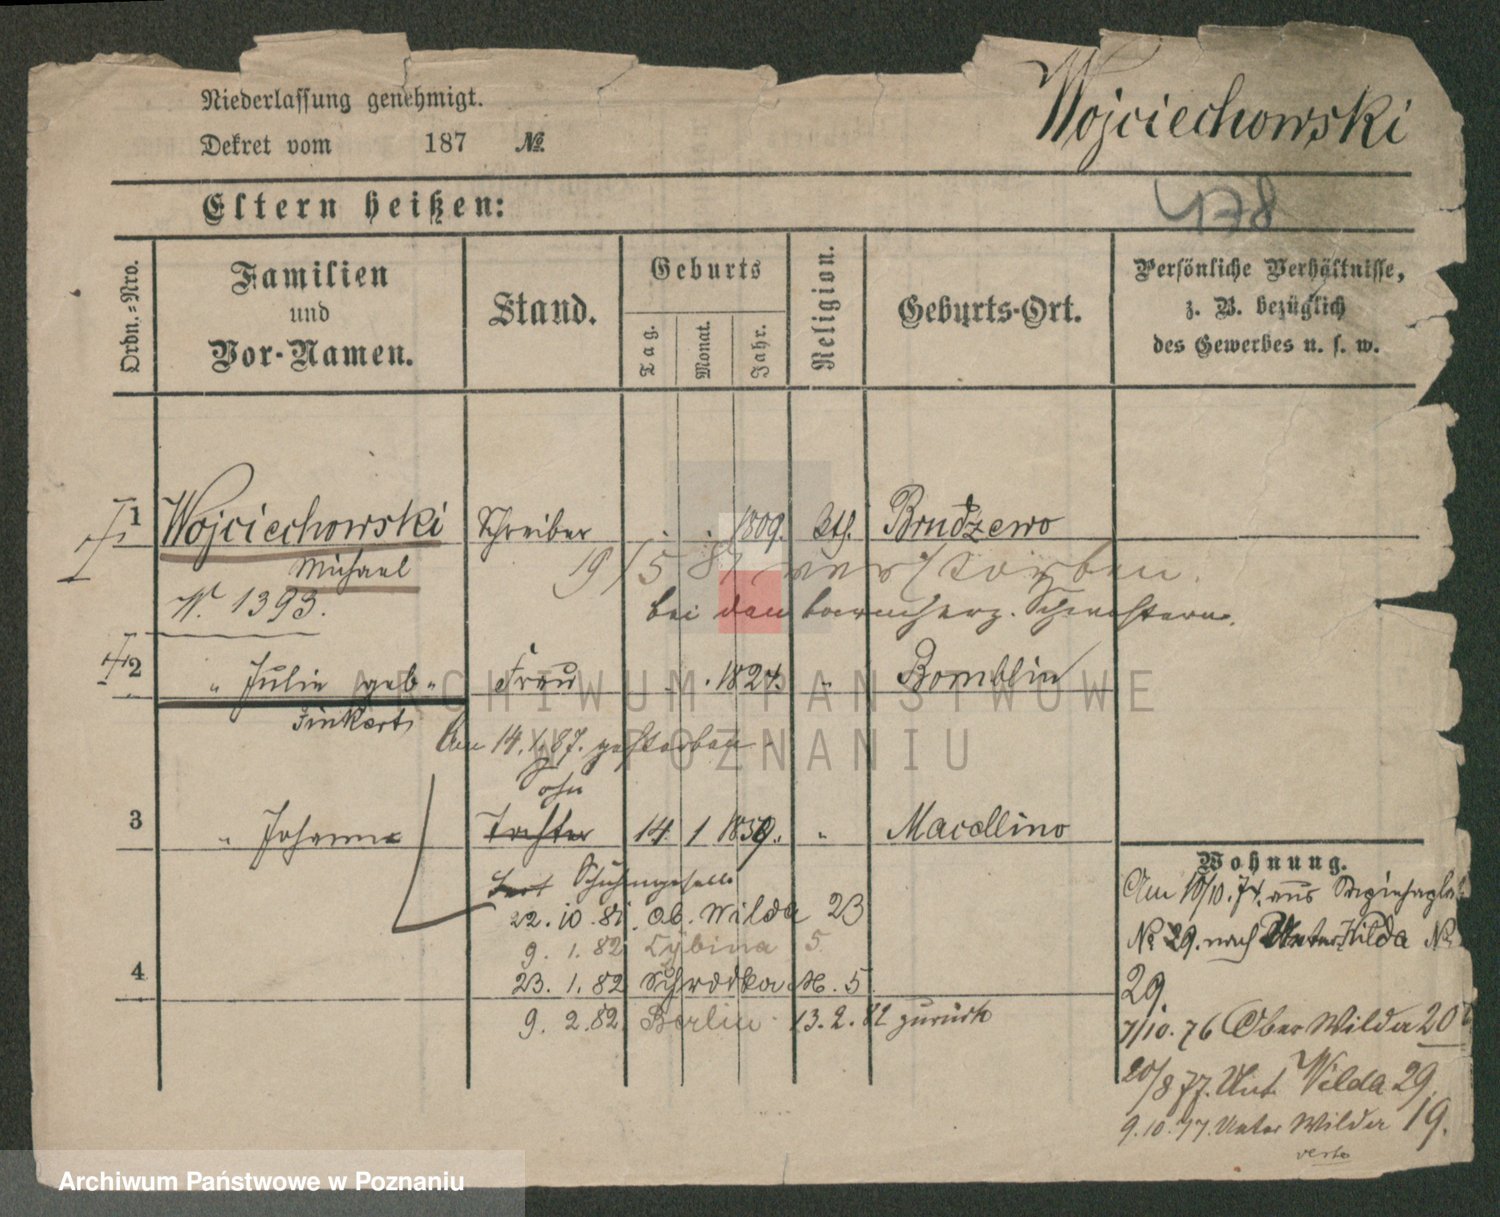 Niederlassung genehmigt.
Dekret vom 187 №
Wojciechowski
Eltern heißen:
178
Ordn.-Nro.
Familien
und
Vor-Namen.
Stand.
Geburts
Tag.
Monat.
Jahr.
Religion.
Geburts-Ort.
Persönliche Verhältnisse,
z. B. bezüglich
des Gewerbes u. s. w.
1 Wojciechowski Schreiber . . 1809. kth. Brudzewo
Michael
19/5 87 verstorben.
N. 1393.
bei den barmherz. Schwestern.
2 " Julie geb. Frau . . 1824. " Bomblin
Am 14.1.87. gestorben.
Sohn
3 " Johann Tochter 14 1 1859. " Marcellino
Schuhmgeselle
22.10.81. Ob. Wilda 23
9. 1. 82 Cybina 5
4 23. 1. 82 Schrodka N. 5.
9. 2. 82 Berlin 13. 2. 82 zurück
Wohnung.
Am 10/10. 74. aus
№ 29. nach Unter Wilda №
29.
7/10. 76 Ober Wilda 20
20/8 77. Unt. Wilda 29.
9.10.77. Unter Wilda 19.
verte
ARCHIWUM PAŃSTWOWE
W POZNANIU
Archiwum Państwowe w Poznaniu